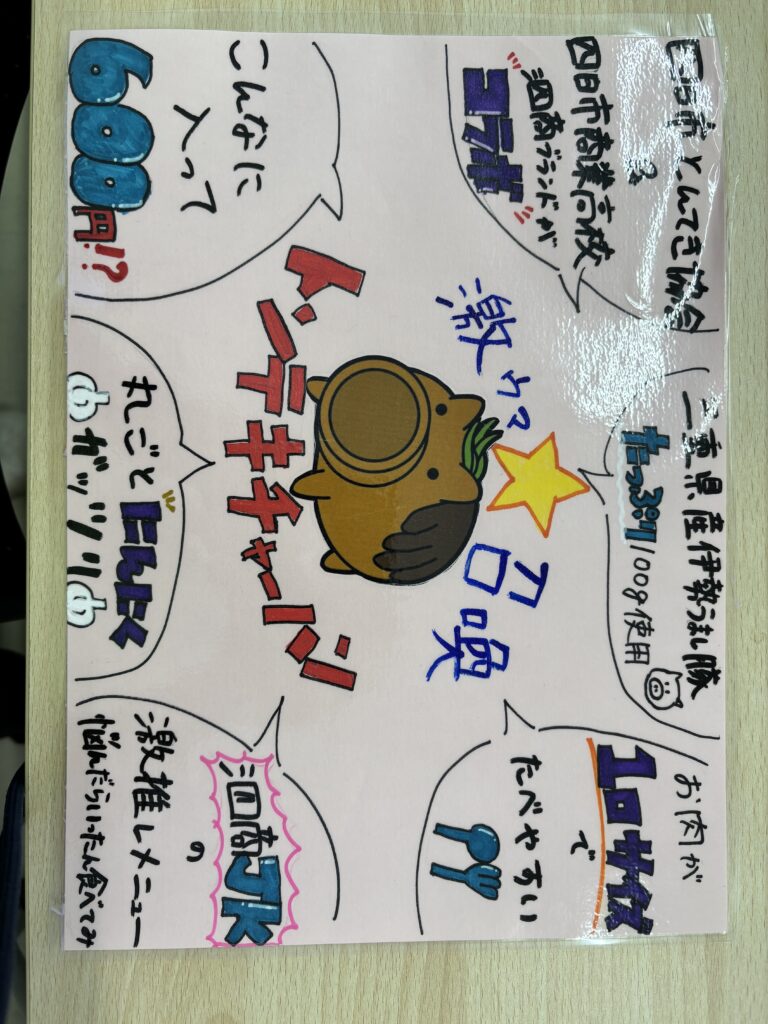 四日市とんてき協会
&
四日市商業高校
泗商ブランドが
コラボ
三重県産伊勢うまし豚
たっぷり100g使用
お肉が
1口サイズ
で
たべやすい
激ウマ
召喚
トンテキチャーハン
こんなに
入って
600円!?
丸ごとにんにく
ガッツリ
泗商JK
の
激推しメニュー
悩んだらいったん食べてみ